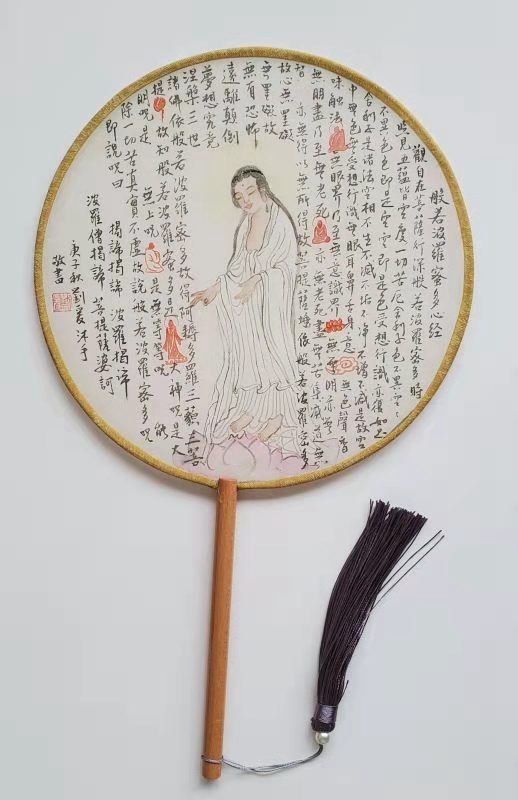 般若波羅蜜多心经
觀自在菩薩行深般若波羅蜜多時
照見五蘊皆空度一切苦厄舍利子色不異空空
不異色色即是空空即是色受想行識亦復如是
舍利子是諸法空相不生不滅不垢不淨不增不減是故空
中無色無受想行識無眼耳鼻舌身意無色聲香
味觸法無眼界乃至無意識界無無明亦無
無明盡乃至無老死亦無老死盡無苦集滅道無
智亦無得以無所得故菩提薩埵依般若波羅蜜多
故心無罣礙
無罣礙故
無有恐怖
遠離顛倒
夢想究竟
涅槃三世
諸佛依般若波羅蜜多故得阿耨多羅三藐三菩
提故知般若波羅蜜多是大神咒是大
明咒是無上咒是無等等咒能
除一切苦真實不虛故說般若波羅蜜多咒
即說咒曰 揭諦揭諦 波羅揭諦
波羅僧揭諦 菩提薩婆訶
庚子秋劉愛沐手
敬書